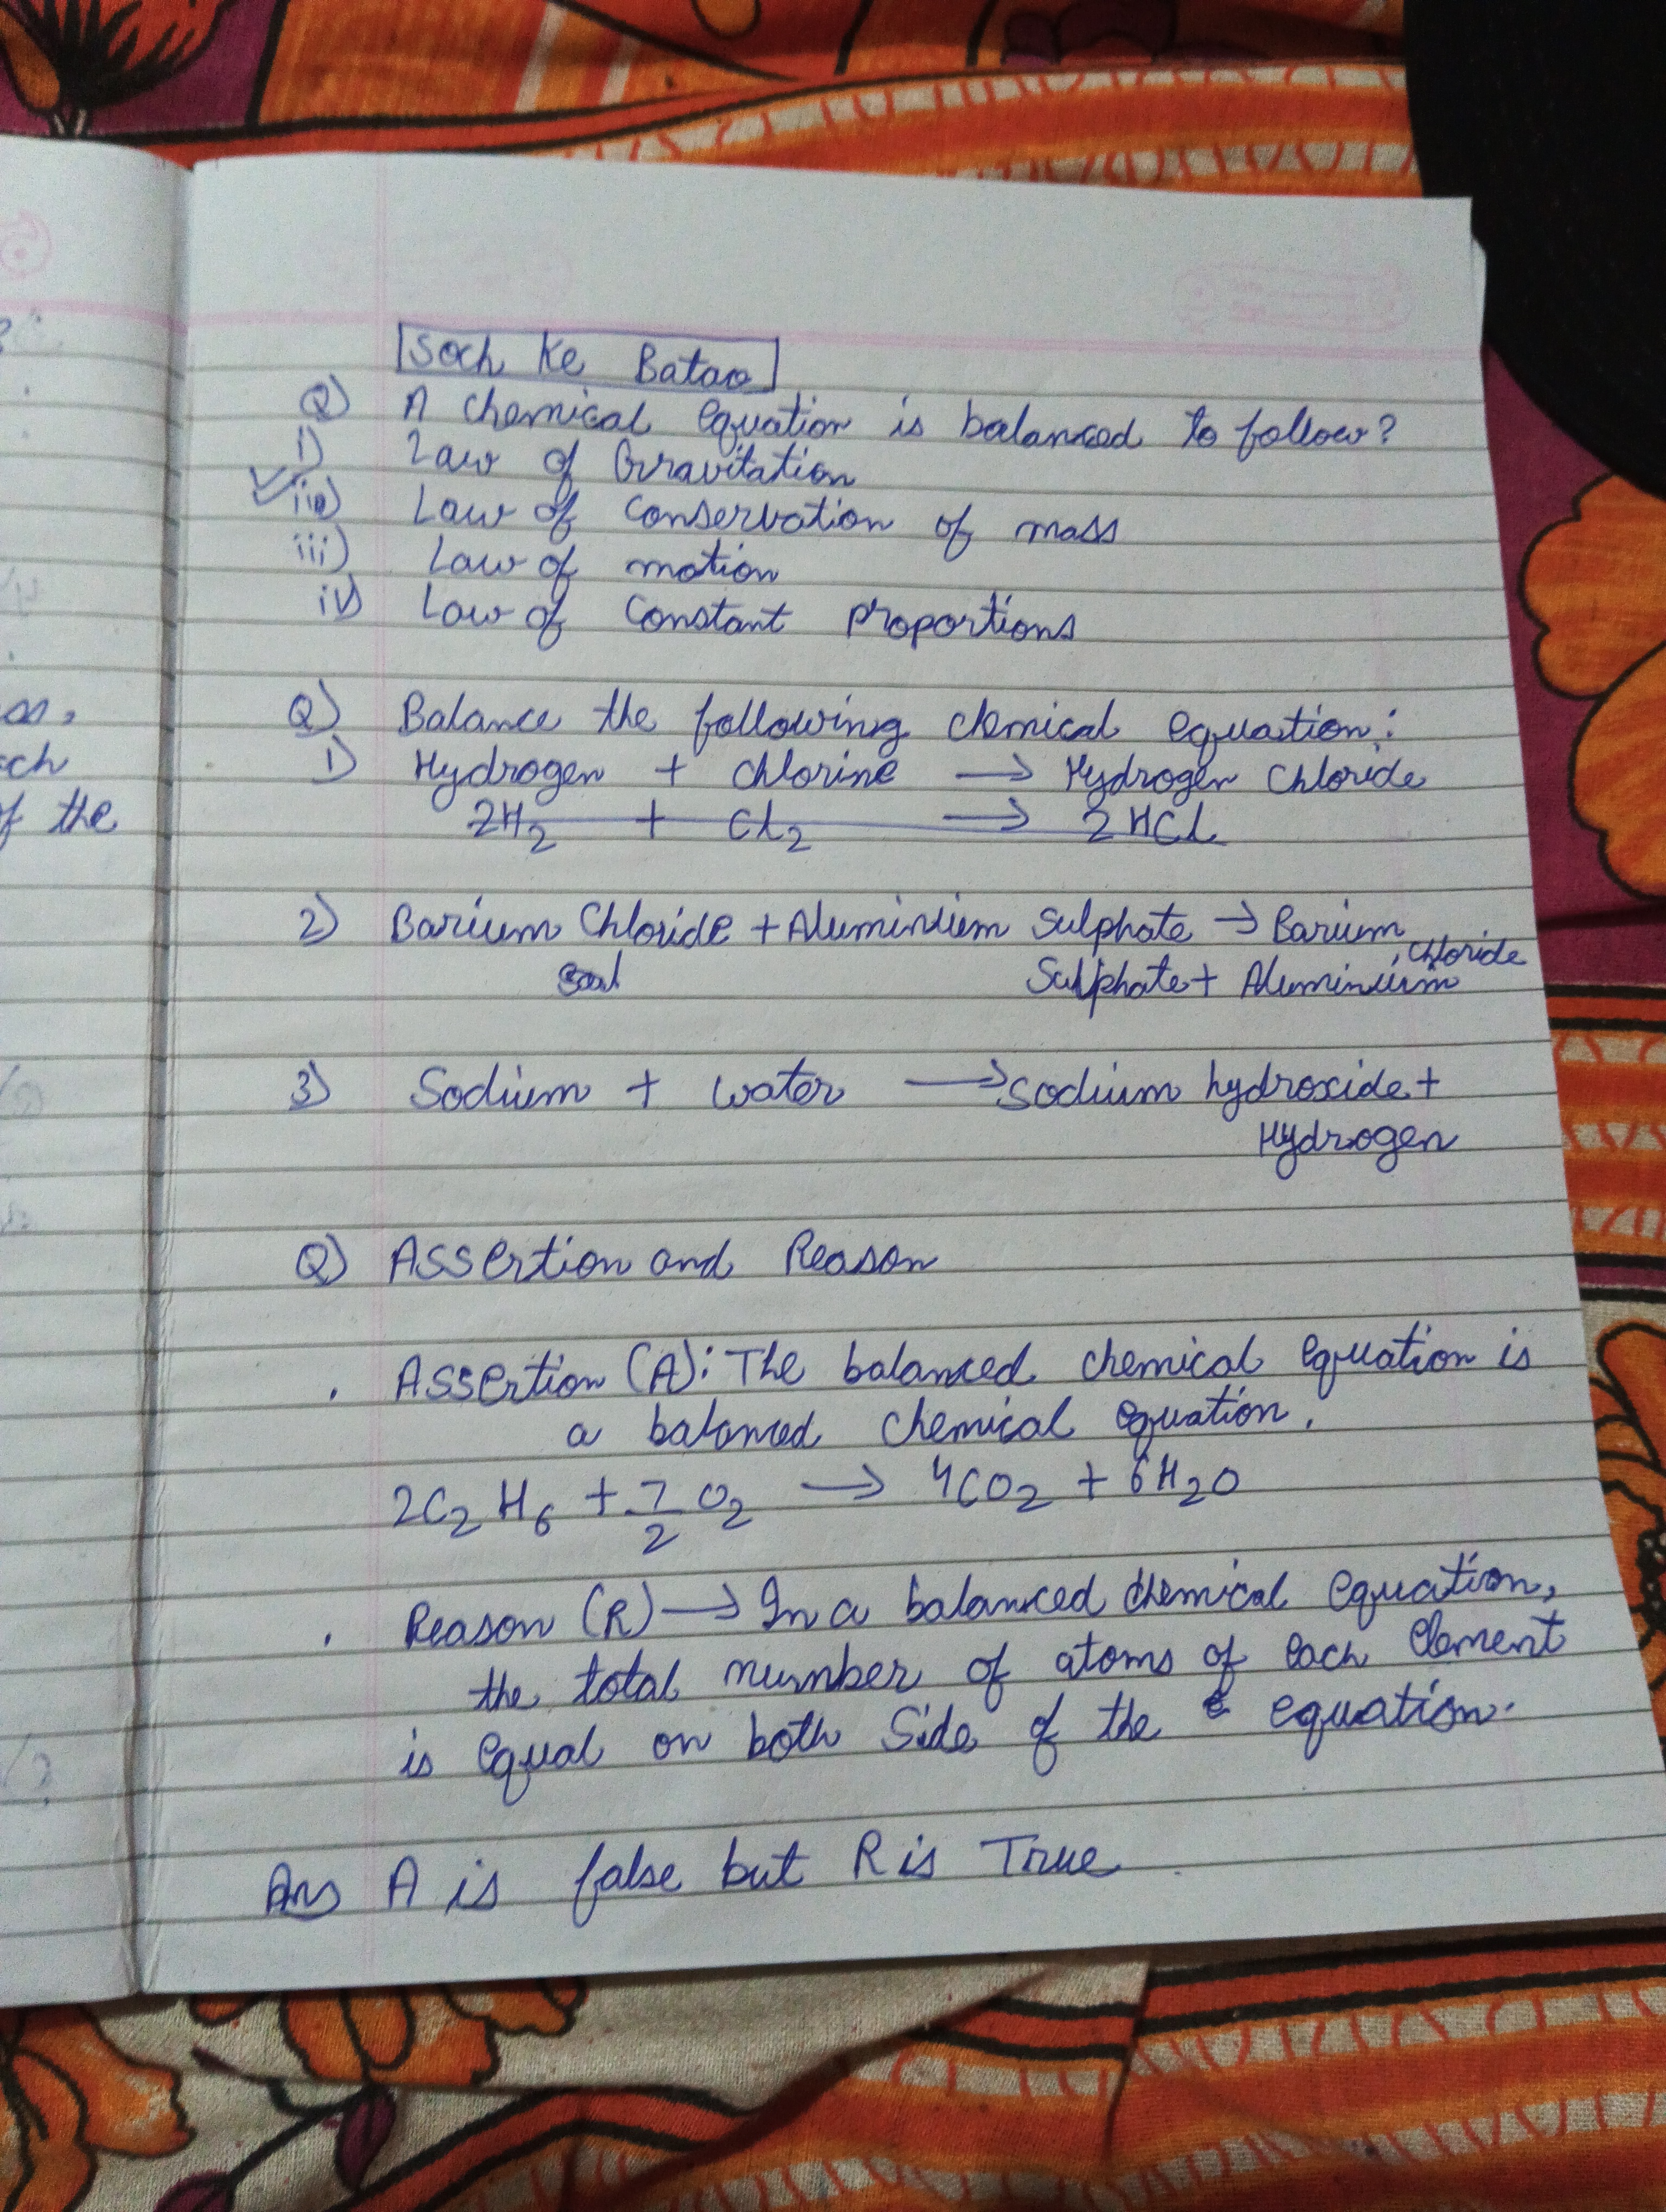 Soch Ke Batao
Q) A chemical equation is balanced to follow?
i) Law of Gravitation
ii) Law of Conservation of mass
iii) Law of motion
iv) Law of Constant Proportions
Q) Balance the following chemical equation:
1) Hydrogen + Chlorine → Hydrogen Chloride
2H₂ + Cl₂ → 2HCl
2) Barium Chloride + Aluminium Sulphate → Barium
Sulphate + Aluminium Chloride
3) Sodium + water → Sodium hydroxide +
Hydrogen
Q) Assertion and Reason
. Assertion (A): The balanced chemical equation is
a balanced chemical equation.
2C₂H₆ + 7/2 O₂ → 4CO₂ + 6H₂O
. Reason (R) → In a balanced chemical equation,
the total number of atoms of each Element
is equal on both Side of the equation.
Ans A is false but R is True